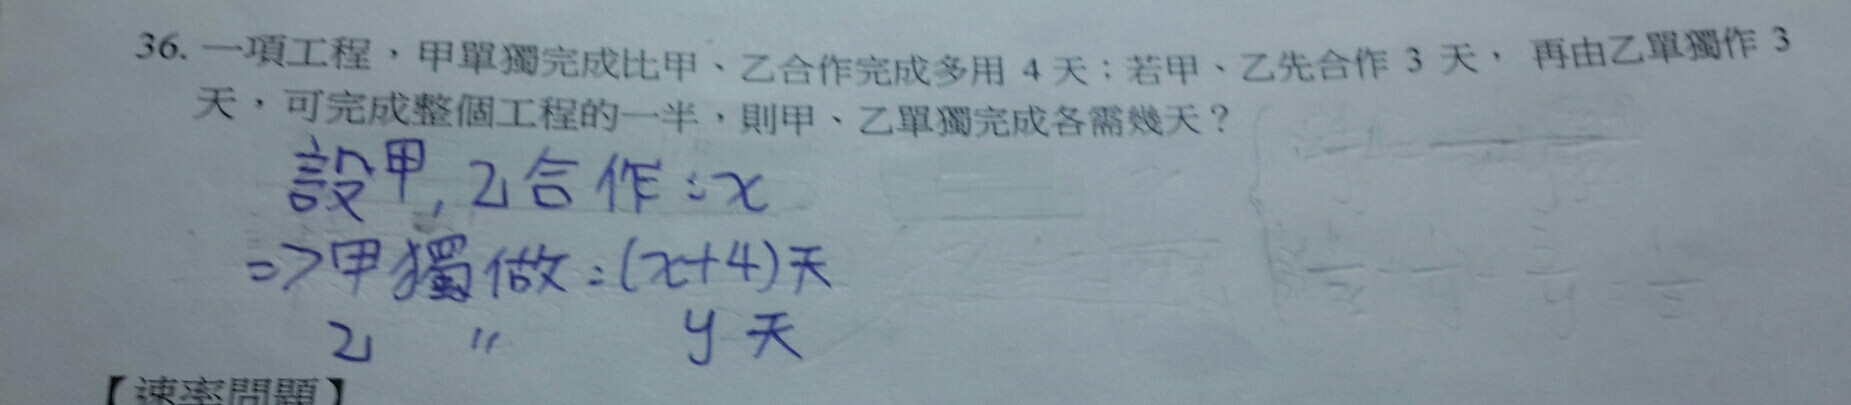 36. 一項工程，甲單獨完成比甲、乙合作完成多用 4 天；若甲、乙先合作 3 天， 再由乙單獨作 3
天，可完成整個工程的一半，則甲、乙單獨完成各需幾天？
設甲,乙合作:x
=>甲獨做:(x+4)天
乙 〃 y天
【速率問題】